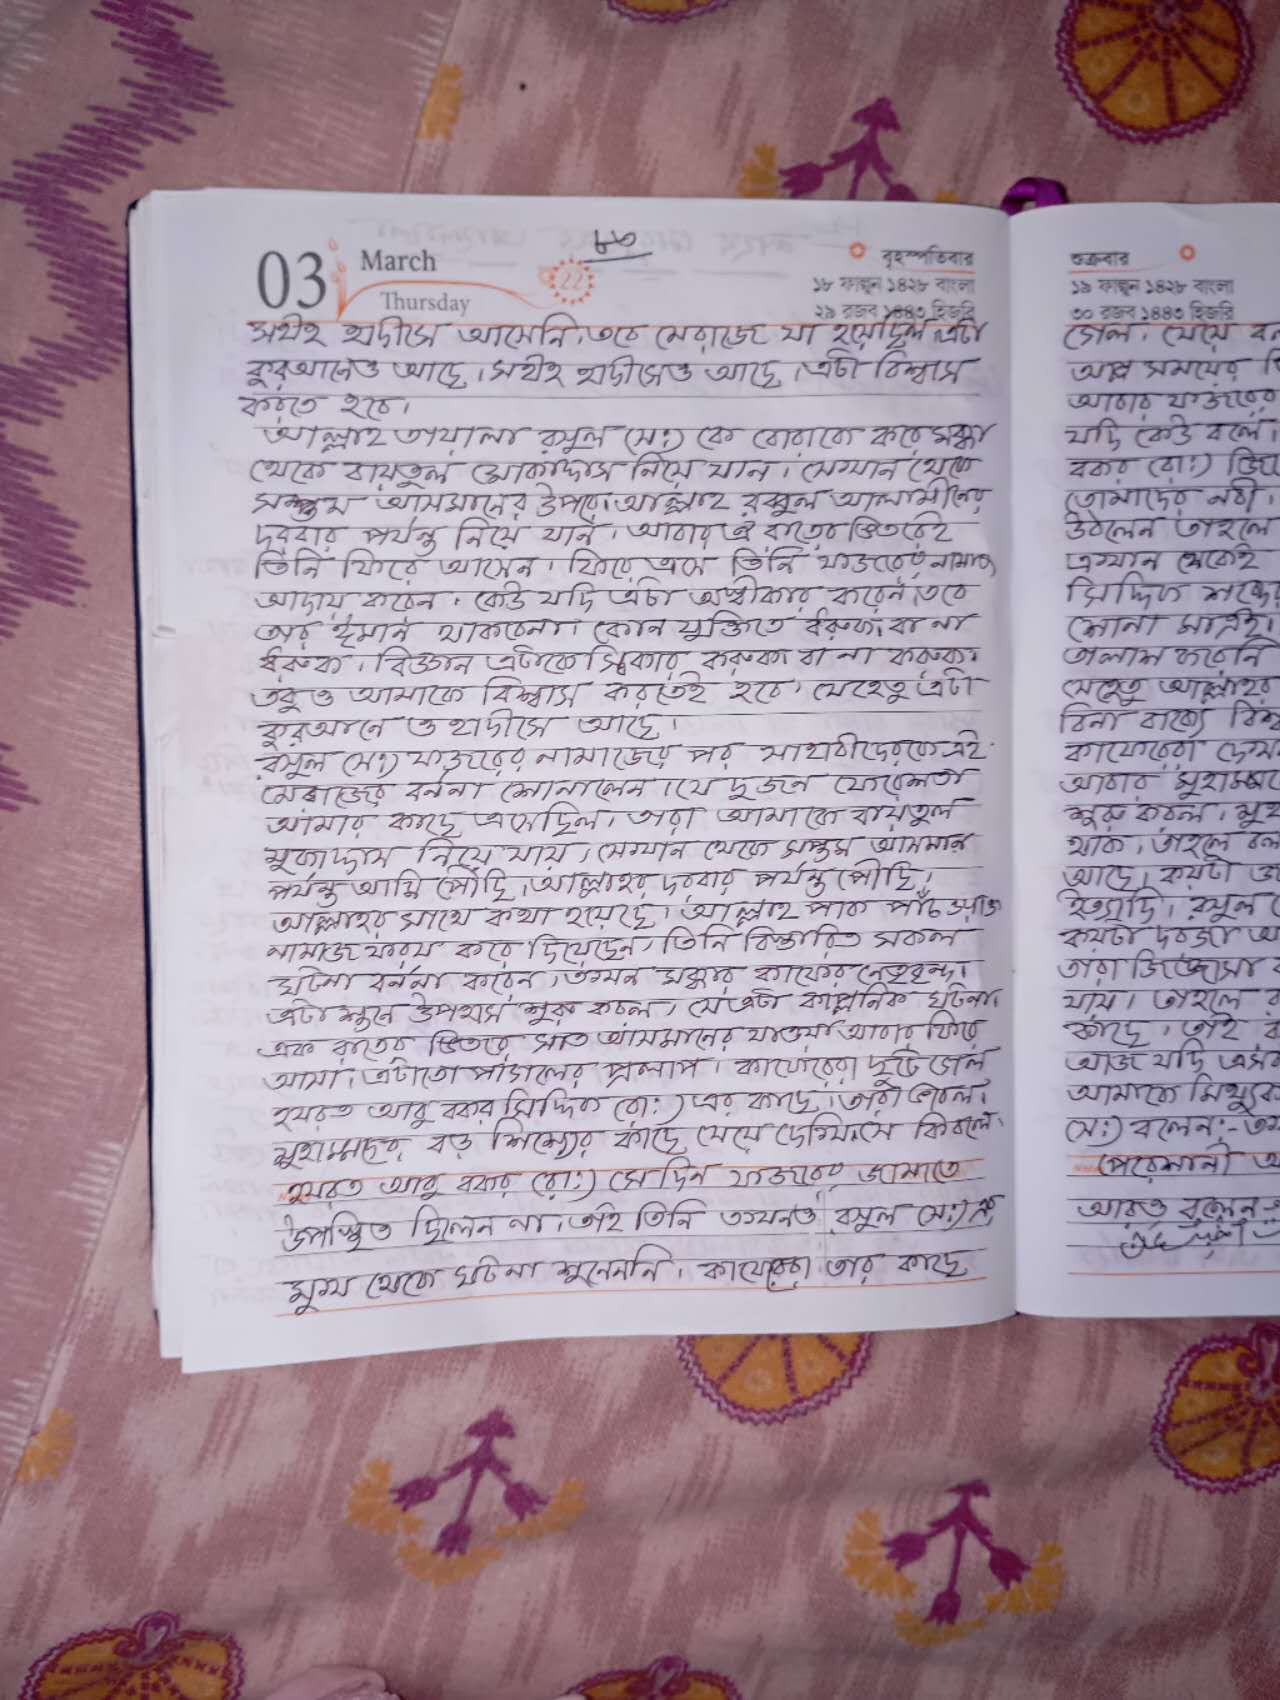 03 March Thursday 22
৮৩
বৃহস্পতিবার
১৮ ফাল্গুন ১৪২৮ বাংলা
২৯ রজব ১৪৪৩ হিজরি
সহীহ হাদীসে আসেনি, তবে মেরাজে যা হয়েছিল এটা
কুরআনেও আছে। সহীহ হাদীসেও আছে। এটা বিশ্বাস
করতে হবে।
আল্লাহ তায়ালা রসুল (স:) কে বোরাকে করে মক্কা
থেকে বায়তুল মোকাদ্দাস নিয়ে যান। সেখান থেকে
সপ্তম আসমানের উপরে। আল্লাহ রব্বুল আলামীনের
দরবার পর্যন্ত নিয়ে যান। আবার ঐ রাতের ভিতরেই
তিনি ফিরে আসেন। ফিরে এসে তিনি ফজরের নামাজ
আদায় করেন। কেউ যদি এটা অস্বীকার করেন তবে
তার ঈমান থাকবেনা। কোন যুক্তিতে ধরুক বা না
ধরুক। বিজ্ঞান এটাকে স্বিকার করুক বা না করুক।
তবু ও আমাকে বিশ্বাস করতেই হবে। যেহেতু এটা
কুরআনে ও হাদীসে আছে।
রসুল (স:) ফজরের নামাজের পর সাহাবীদেরকে এই
মেরাজের বর্ননা শোনালেন। যে দুজন ফেরেশতা
আমার কাছে এসেছিল। তারা আমাকে বায়তুল
মুকাদ্দাস নিয়ে যায়। সেখান থেকে সপ্তম আসমান
পর্যন্ত আমি পৌছি। আল্লাহর দরবার পর্যন্ত পৌছি।
আল্লাহর সাথে কথা হয়েছে। আল্লাহ পাক পাঁচ ওয়াক্ত
নামাজ ফরয করে দিয়েছেন। তিনি বিস্তারিত সকল
ঘটনা বর্ননা করেন। তখন মক্কার কাফের নেতৃবৃন্দ।
এটা শুনে উপহাস শুরু করল। যে এটা কাল্পনিক ঘটনা।
এক রাতের ভিতরে সাত আসমানের যাওয়া আবার ফিরে
আসা। এটাতো পাগলের প্রলাপ। কাফেরেরা ছুটে গেল
হযরত আবু বকর সিদ্দিক (রা:) এর কাছে। তারা ভাবল।
মুহাম্মদের বড় শিষ্যের কাছে যেয়ে দেখি। সে কি বলে।
হযরত আবু বকর (রা:) সে দিন ফজরের জামাতে
উপস্থিত ছিলেন না। তাই তিনি তখনও রসুল (স:) এর
মুখ থেকে ঘটনা শুনেননি। কাফেরেরা তার কাছে
শুক্রবার
১৯ ফাল্গুন ১৪২৮ বাংলা
৩০ রজব ১৪৪৩ হিজরি
গেল। যেয়ে
অল্প সময়ের
আবার ফজরের
যদি কেউ বলে।
বকর (রা:)
তোমাদের নবী।
বললেন তাহলে
এখান থেকেই
সিদ্দিক
শোনা মাত্রই।
তালাশ করেনি
যেহেতু আল্লাহর
বিনা বাক্যে
কাফেরেরা
আবার
শুরু করল।
থাক। তাহলে
আছে। কয়টা
ইত্যাদি। রসুল
কয়টা দরজা
তারা জিজ্ঞেসা
যায়। তাহলে
কাছে। তাই
আজ যদি
আমাকে
(স:) বলেন:-
পেরেশানী
আরও বলেন